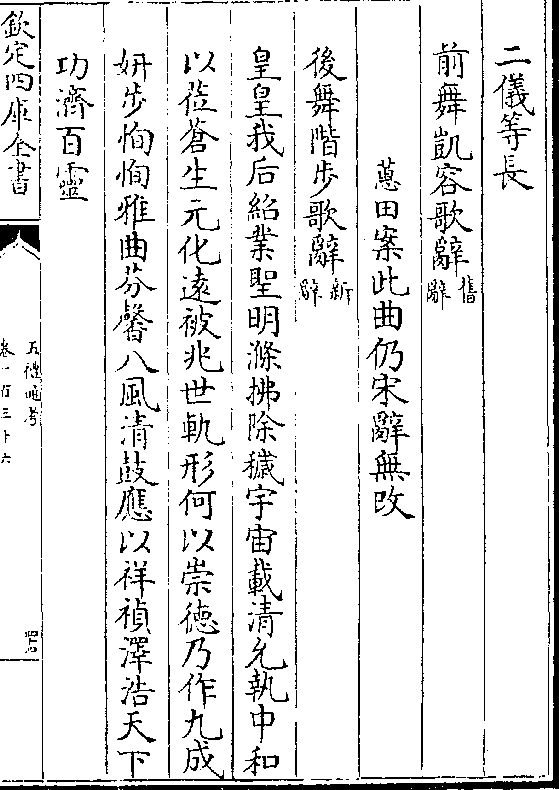 二儀等長
前舞凱容歌辭舊辭
蕙田案此曲仍宋辭無改
後舞階步歌辭新辭
皇皇我后紹業聖明滌拂除穢宇宙載清允執中和
以莅蒼生元化遠被兆世軌形何以崇德乃作九成
妍步恂恂雅曲芬馨八風清鼓應以祥禎澤浩天下
功濟百靈
欽定四庫全書
五禮通考
卷一百三十六